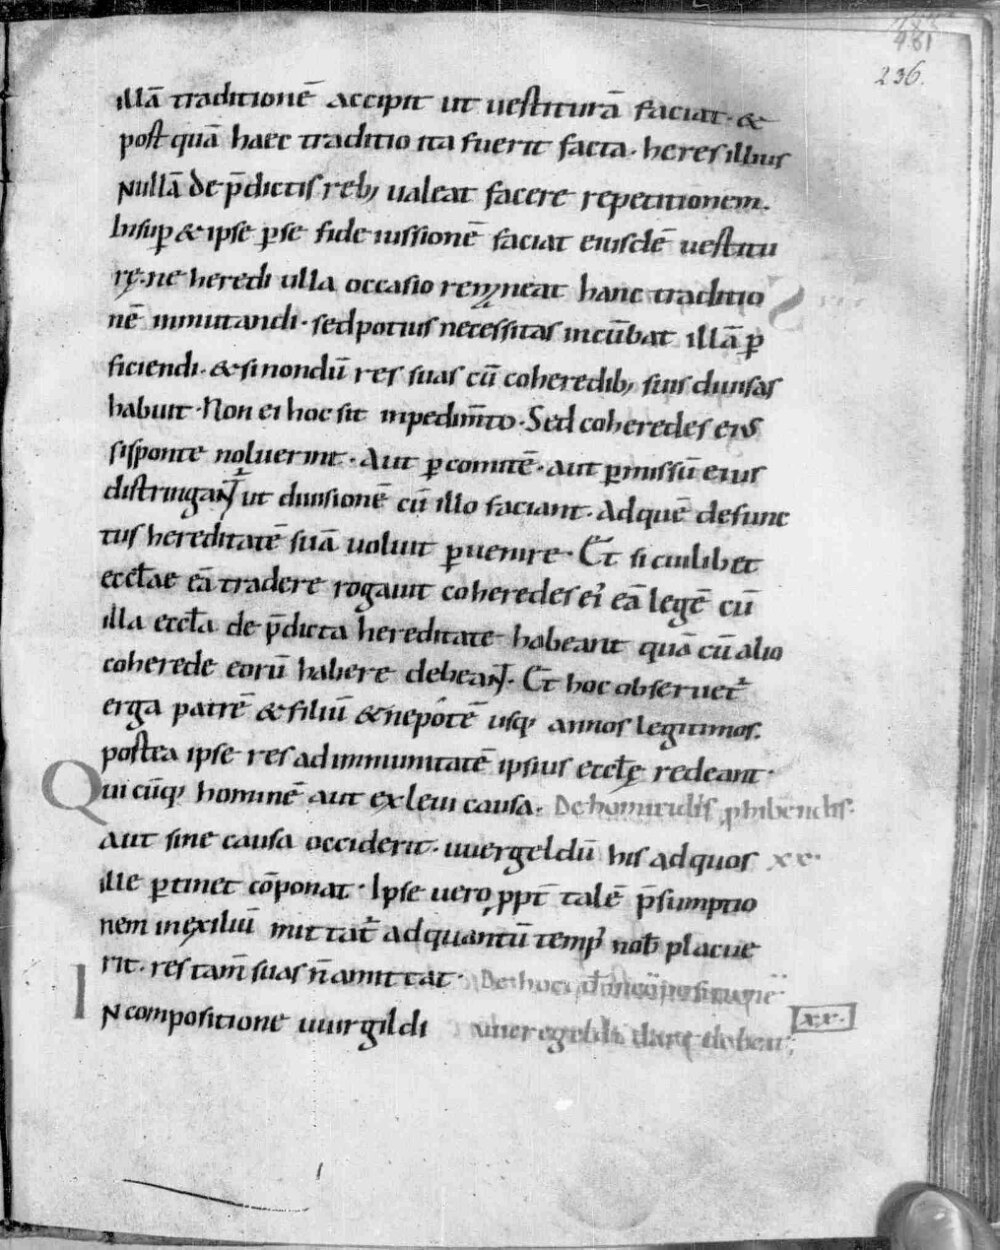 481
236.
illā traditionē accipit ut uestiturā faciat · &
post quā haec traditio ita fuerit facta · heres illius
Nullā de p̄dictis reb; ualeat facere repetitionem.
Insup̱ & ipse p̱ se fideiussionē faciat eiusdē uestitu
rę · ne heredi ulla occasio remaneat hanc traditio
nē inmutandi · sed potius necessitas incūbat illā p̱
ficiendi · & si nondū res suas cū coheredib; suis diuisas
habuit · Non ei hoc sit inpedim̄to · Sed coheredes eius
si sponte noluerint · Aut p̱ comitē · aut p̱ missū eius
distringant̄ ut diuisionē cū illo faciant · Ad quē defunc
tus hereditatē suā uoluit p̱uenire · Et si cuilibet
eccl̄ae eā tradere rogauit coheredes ei᾽ eā legē cū
illa eccl̄a de p̄dicta hereditate habeant quā cū alio
coherede eorū habere debeant · Et hoc obseruet᷑
erga patrē & filiū & nepotē usq; annos legitimos.
postea ipse res ad inmunitatē ipsius eccl̄ę redeant ·
Qui cūq; hominē aut ex leui causa · De homicidiis ꝓhibendis ·
aut sine causa occiderit · uuergeldū his ad quos xx ·
ille p̱tinet cōponat · Ipse uero ꝓpt̄ talē p̄sumptio
nem in exiliū mittat᷑ ad quantū temp᾽ nob̄ placue
rit · res tam̄ suas n̄ amittat ·
IN compositione uuirgildi uueregeldi dari debeat;